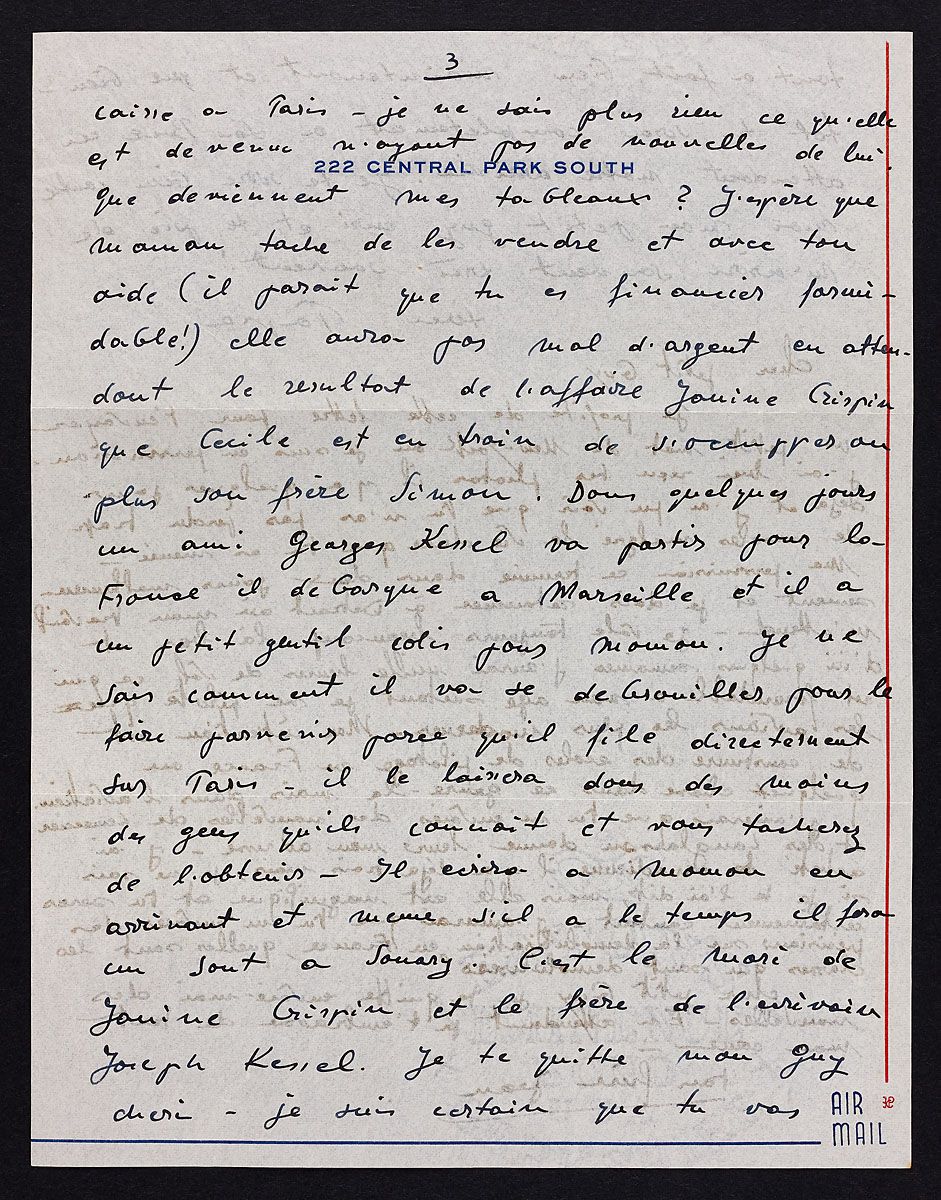 3
caisse a Paris - je ne sais plus rien ce qu'elle
est devenue n'ayant pas de nouvelles de lui.
222 CENTRAL PARK SOUTH
Que deviennent mes tableaux ? J'espère que
maman tache de les vendre et avec ton
aide (il parait que tu es financier formi-
dable!) elle aura pas mal d'argent en atten-
dant le resultat de l'affaire Janine Crispin
que Cecile est en train de s'occupper ou
plus son frère Simon. Dans quelques jours
un ami Georges Kessel va partir pour la
France il debarque a Marseille et il a
un petit gentil colis pour maman. Je ne
sais comment il va se debrouiller pour le
faire parvenir parce qu'il file directement
sur Paris - il le laissera dans des mains
des gens qu'ils connait et vous tacherez
de l'obtenir - Il ecrira a maman en
arrivant et meme s'il a le temps il fera
un saut a Sanary. C'est le mari de
Janine Crispin et le frère de l'ecrivain
Joseph Kessel. Je te quitte mon Guy
cheri - je suis certain que tu vas
AIR
MAIL